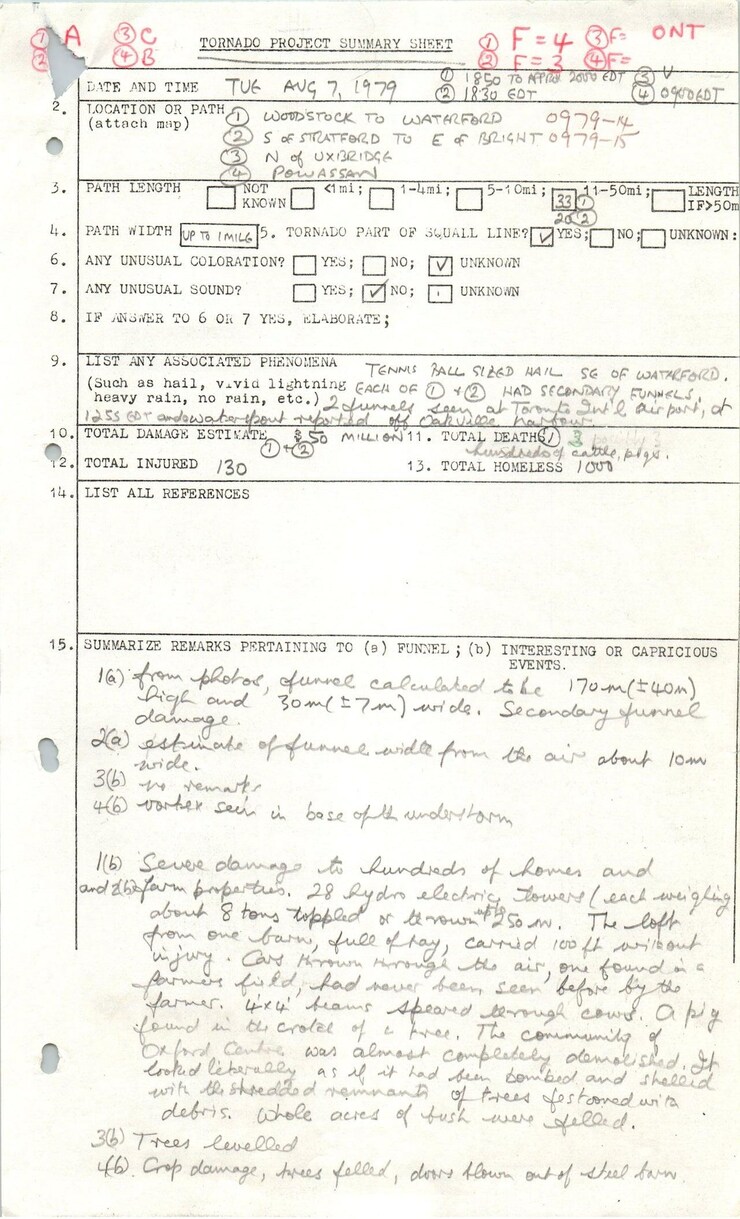 ① A ③ C
② ④ B
TORNADO PROJECT SUMMARY SHEET
① F = 4 ③ F= ONT
② F = 3 ④ F=
DATE AND TIME TUE AUG 7, 1979
① 1850 TO APPROX 2000 EDT ③ U
② 1830 EDT ④ 0900 EDT
2. LOCATION OR PATH ① WOODSTOCK TO WATERFORD 0979-14
(attach map) ② S OF STRATFORD TO E OF BRIGHT 0979-15
③ N OF UXBRIDGE
④ POWASSAN
3. PATH LENGTH NOT KNOWN <1mi; 1-4mi; 5-10mi; 33 ① 11-50mi; LENGTH IF>50m
20 ②
4. PATH WIDTH UP TO 1 MILE 5. TORNADO PART OF SQUALL LINE? ✓ YES; NO; UNKNOWN:
6. ANY UNUSUAL COLORATION? YES; NO; ✓ UNKNOWN
7. ANY UNUSUAL SOUND? YES; ✓ NO; UNKNOWN
8. IF ANSWER TO 6 OR 7 YES, ELABORATE;
9. LIST ANY ASSOCIATED PHENOMENA TENNIS BALL SIZED HAIL SE OF WATERFORD.
(Such as hail, vivid lightning EACH OF ① + ② HAD SECONDARY FUNNELS.
heavy rain, no rain, etc.) 2 funnels seen at Toronto Int'l airport, at
1255 EDT and a waterspout reported off Oakville harbour
10. TOTAL DAMAGE ESTIMATE $50 MILLION 11. TOTAL DEATHS ① 3
① + ② hundreds of cattle, pigs.
12. TOTAL INJURED 130 13. TOTAL HOMELESS 1000
14. LIST ALL REFERENCES
15. SUMMARIZE REMARKS PERTAINING TO (a) FUNNEL; (b) INTERESTING OR CAPRICIOUS
EVENTS.
1(a) from photos, funnel calculated to be 170 m (±40m)
high and 30m (±7m) wide. Secondary funnel
damage.
2(a) estimate of funnel width from the air about 10m
wide.
3(b) no remarks
4(b) vortex seen in base of thunderstorm
1(b) Severe damage to hundreds of homes and
and 2(b) farm properties. 28 hydro electric towers (each weighing
about 8 tons toppled or thrown up to 250 m. The loft
from one barn, full of hay, carried 100 ft without
injury. Cars thrown through the air, one found in a
farmers field, had never been seen before by the
farmer. 4'x4' beams speared through cows. A pig
found in the crotch of a tree. The community of
Oxford Centre was almost completely demolished. It
looked literally as if it had been bombed and shelled
with the shredded remnants of trees festooned with
debris. Whole acres of bush were felled.
3(b) Trees levelled
4(b) Crop damage, trees felled, doors blown out of steel barn.